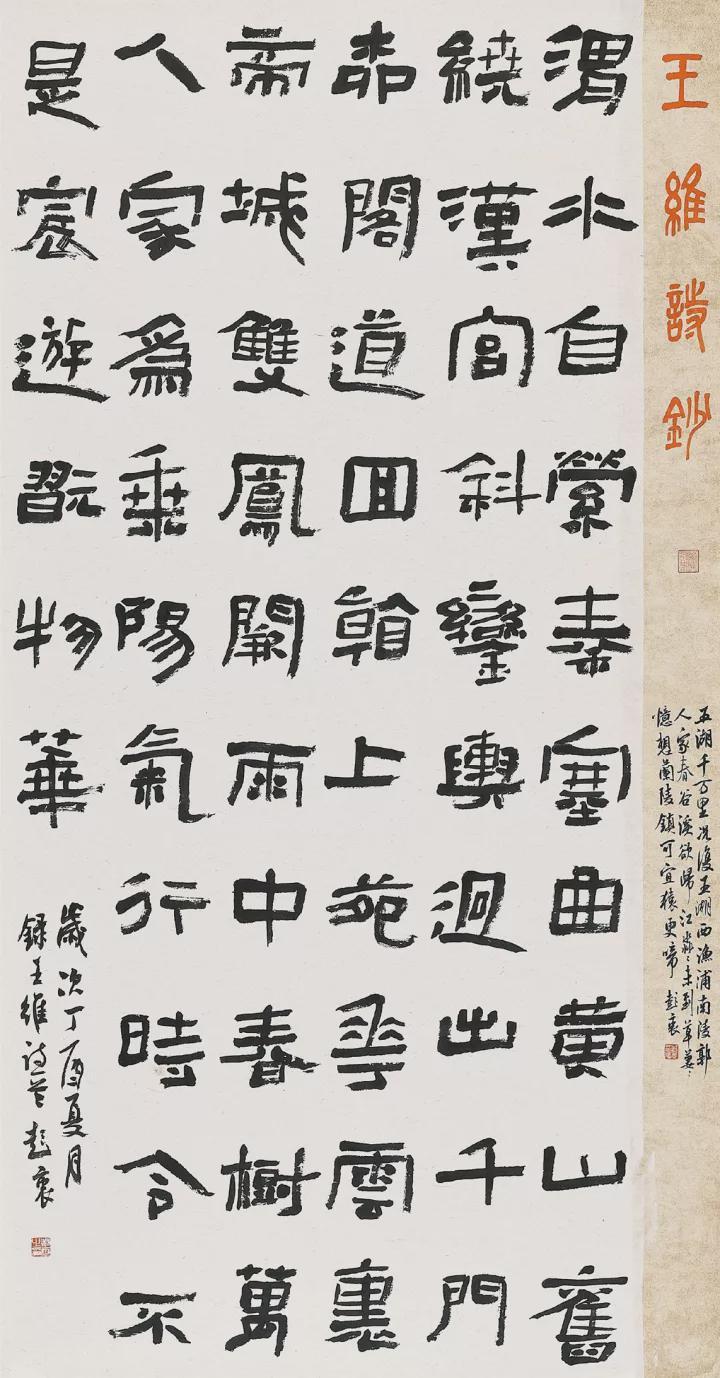 王維詩鈔
五湖千万里況復五湖西漁浦南陵郭
人家春谷溪欲歸江淼〻未到草萋〻
憶想蘭陵鎮可宜猿更啼
渭水自縈秦塞曲黄山舊
繞漢宮斜鑾輿迥出千門
柳閣道回看上苑花雲裏
帝城雙鳳闕雨中春樹萬
人家爲乘陽氣行時令不
是宸遊翫物華
歲次丁酉夏月
錄王維诗